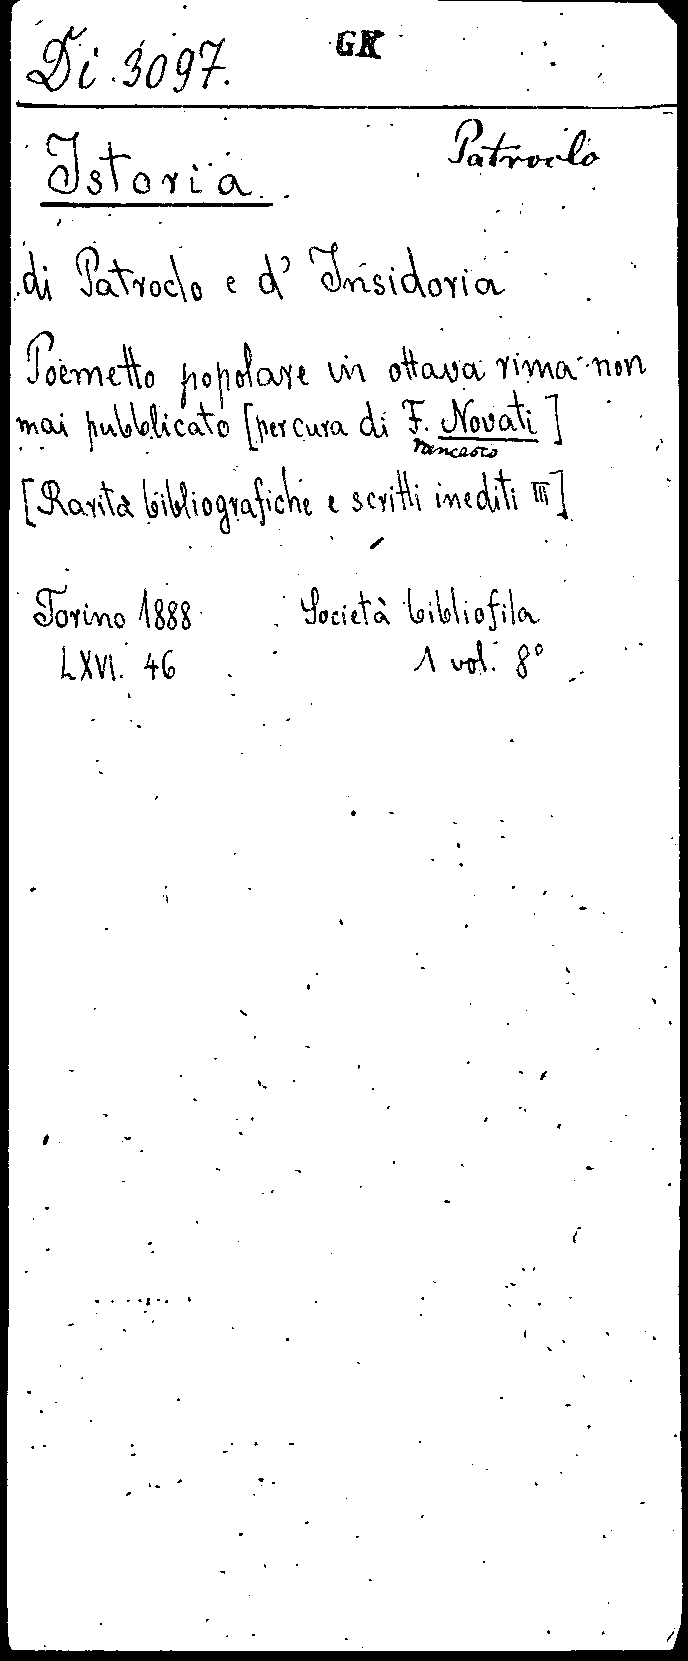 GK
Di 3097.
Patroclo
Istoria
di Patroclo e d' Insidoria
Poemetto popolare in ottava rima non
mai pubblicato [per cura di F. Novati]
rancesco
[Rarità bibliografiche e scritti inediti III]
Torino 1888 Società bibliofila
LXVI. 46 1 vol. 8°